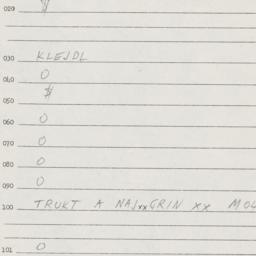 020 $
030 KLEJDL
040 0
050 $
060 0
070 0
080 0
090 0
100 TRUKT A NAJxxGRIN xx MOL
101 0